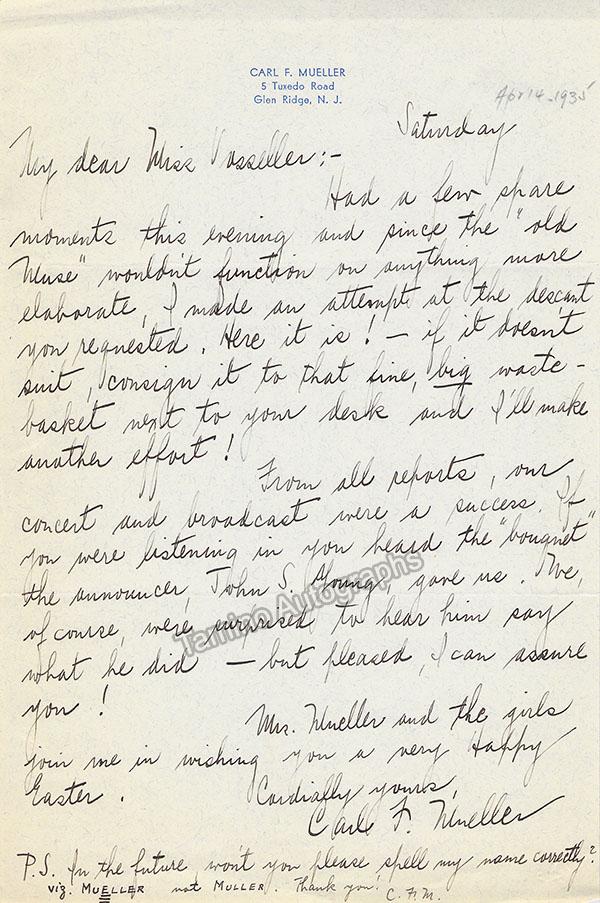 CARL F. MUELLER
5 Tuxedo Road
Glen Ridge, N. J.
Apr 14-1935
Saturday
My dear Miss Vosseller:-
Had a few spare
moments this evening and since the "old
Muse" wouldn't function on anything more
elaborate, I made an attempt at the descant
you requested. Here it is! - if it doesn't
suit, consign it to that fine, big waste-
basket next to your desk and I'll make
another effort!
From all reports, our
concert and broadcast were a success. If
you were listening in you heard the "bouquet"
the announcer, John S. Young, gave us. We,
of course, were surprised to hear him say
what he did - but pleased, I can assure
you!
Mrs. Mueller and the girls
join me in wishing you a very Happy
Easter.
Cordially yours,
Carl F. Mueller
P.S. In the future won't you please spell my name correctly?
viz. MUELLER not MULLER. Thank you! C.F.M.
Tamino Autographs